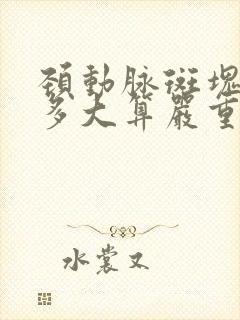 頸動脉斑塊
多大算嚴重
水裳又